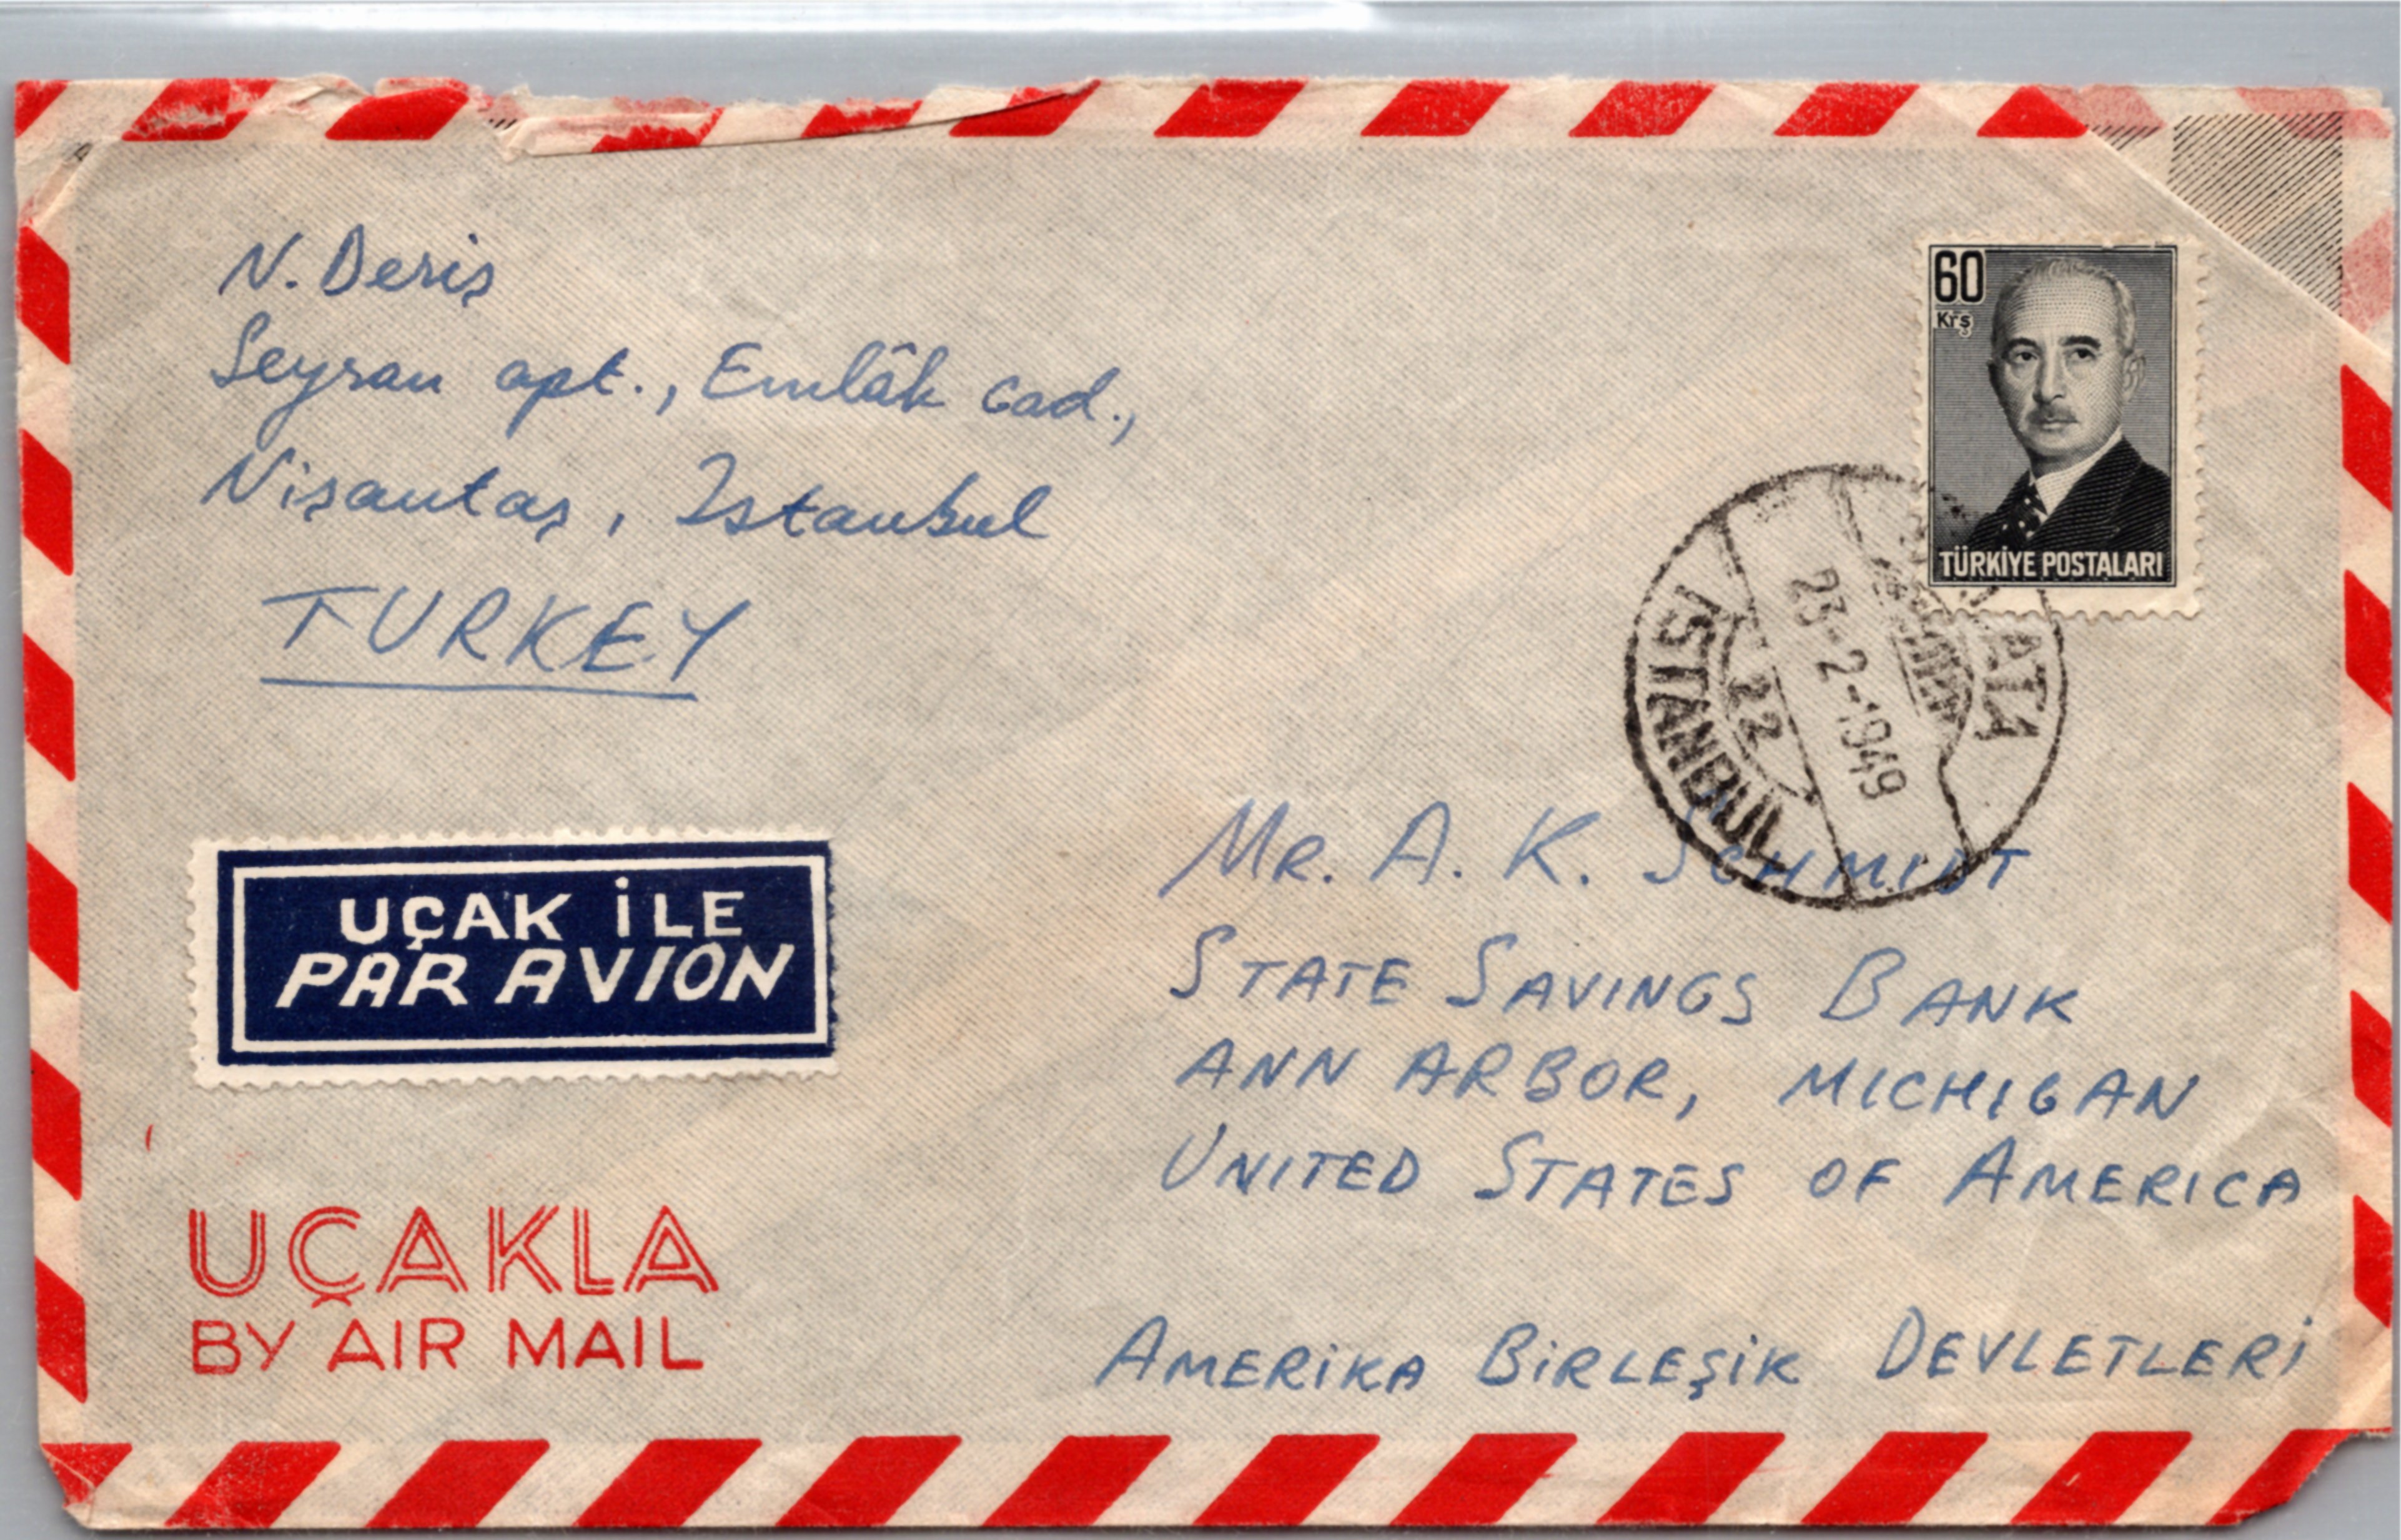 N. Deriş
Seyran apt., Emlâk cad.,
Nişantaş, Istanbul
TURKEY
60
Krş
TÜRKİYE POSTALARI
İSTANBUL
22
23-2-1949
UÇAK İLE
PAR AVION
MR. A. K. SCHMIDT
STATE SAVINGS BANK
ANN ARBOR, MICHIGAN
UNITED STATES OF AMERICA
UÇAKLA
BY AIR MAIL
AMERİKA BİRLEŞİK DEVLETLERİ